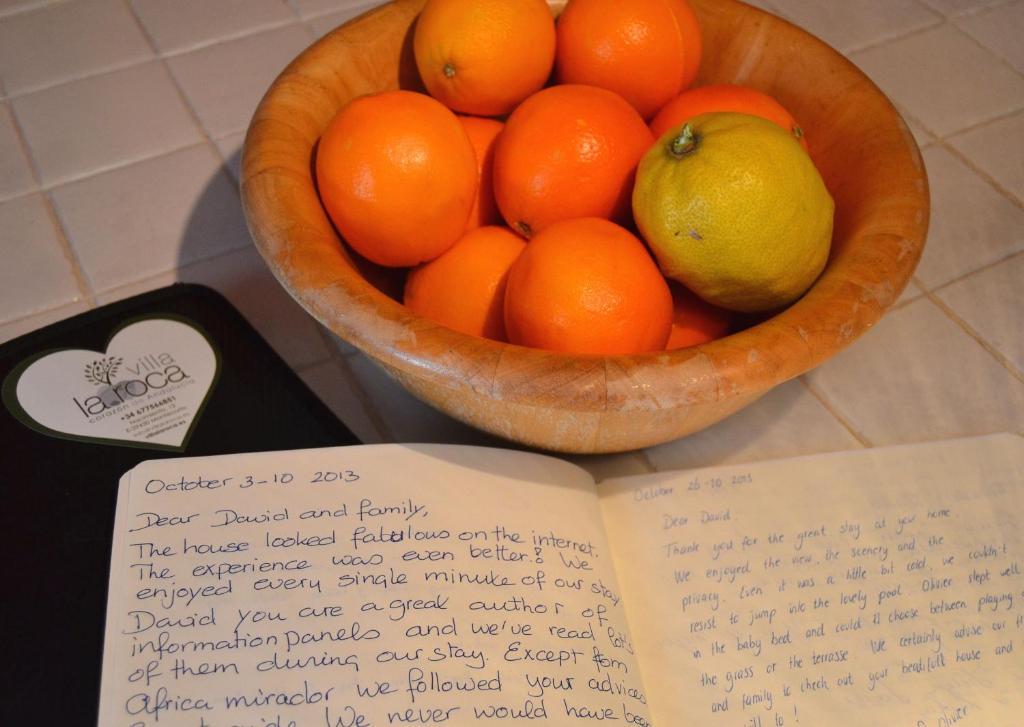 villa
la roca
corazón de Andalucía
+34 677566851
villalaroca.es
October 3-10 2013
Dear David and family,
The house looked fabulous on the internet.
The experience was even better!! We
enjoyed every single minute of our stay
David you are a great author of
information panels and we've read lots
of them during our stay. Except from
Africa mirador we followed your advices
We never would have been
October 26-10 2013
Dear David.
Thank you for the great stay at your home.
We enjoyed the view, the scenery and the
privacy. Even it was a little bit cold, we couldn't
resist to jump into the lovely pool. Olivier slept well
in the baby bed and could choose between playing
the grass or the terrasse. We certainly advise our
and family to check out your beautifull house and
will to!
Olivier